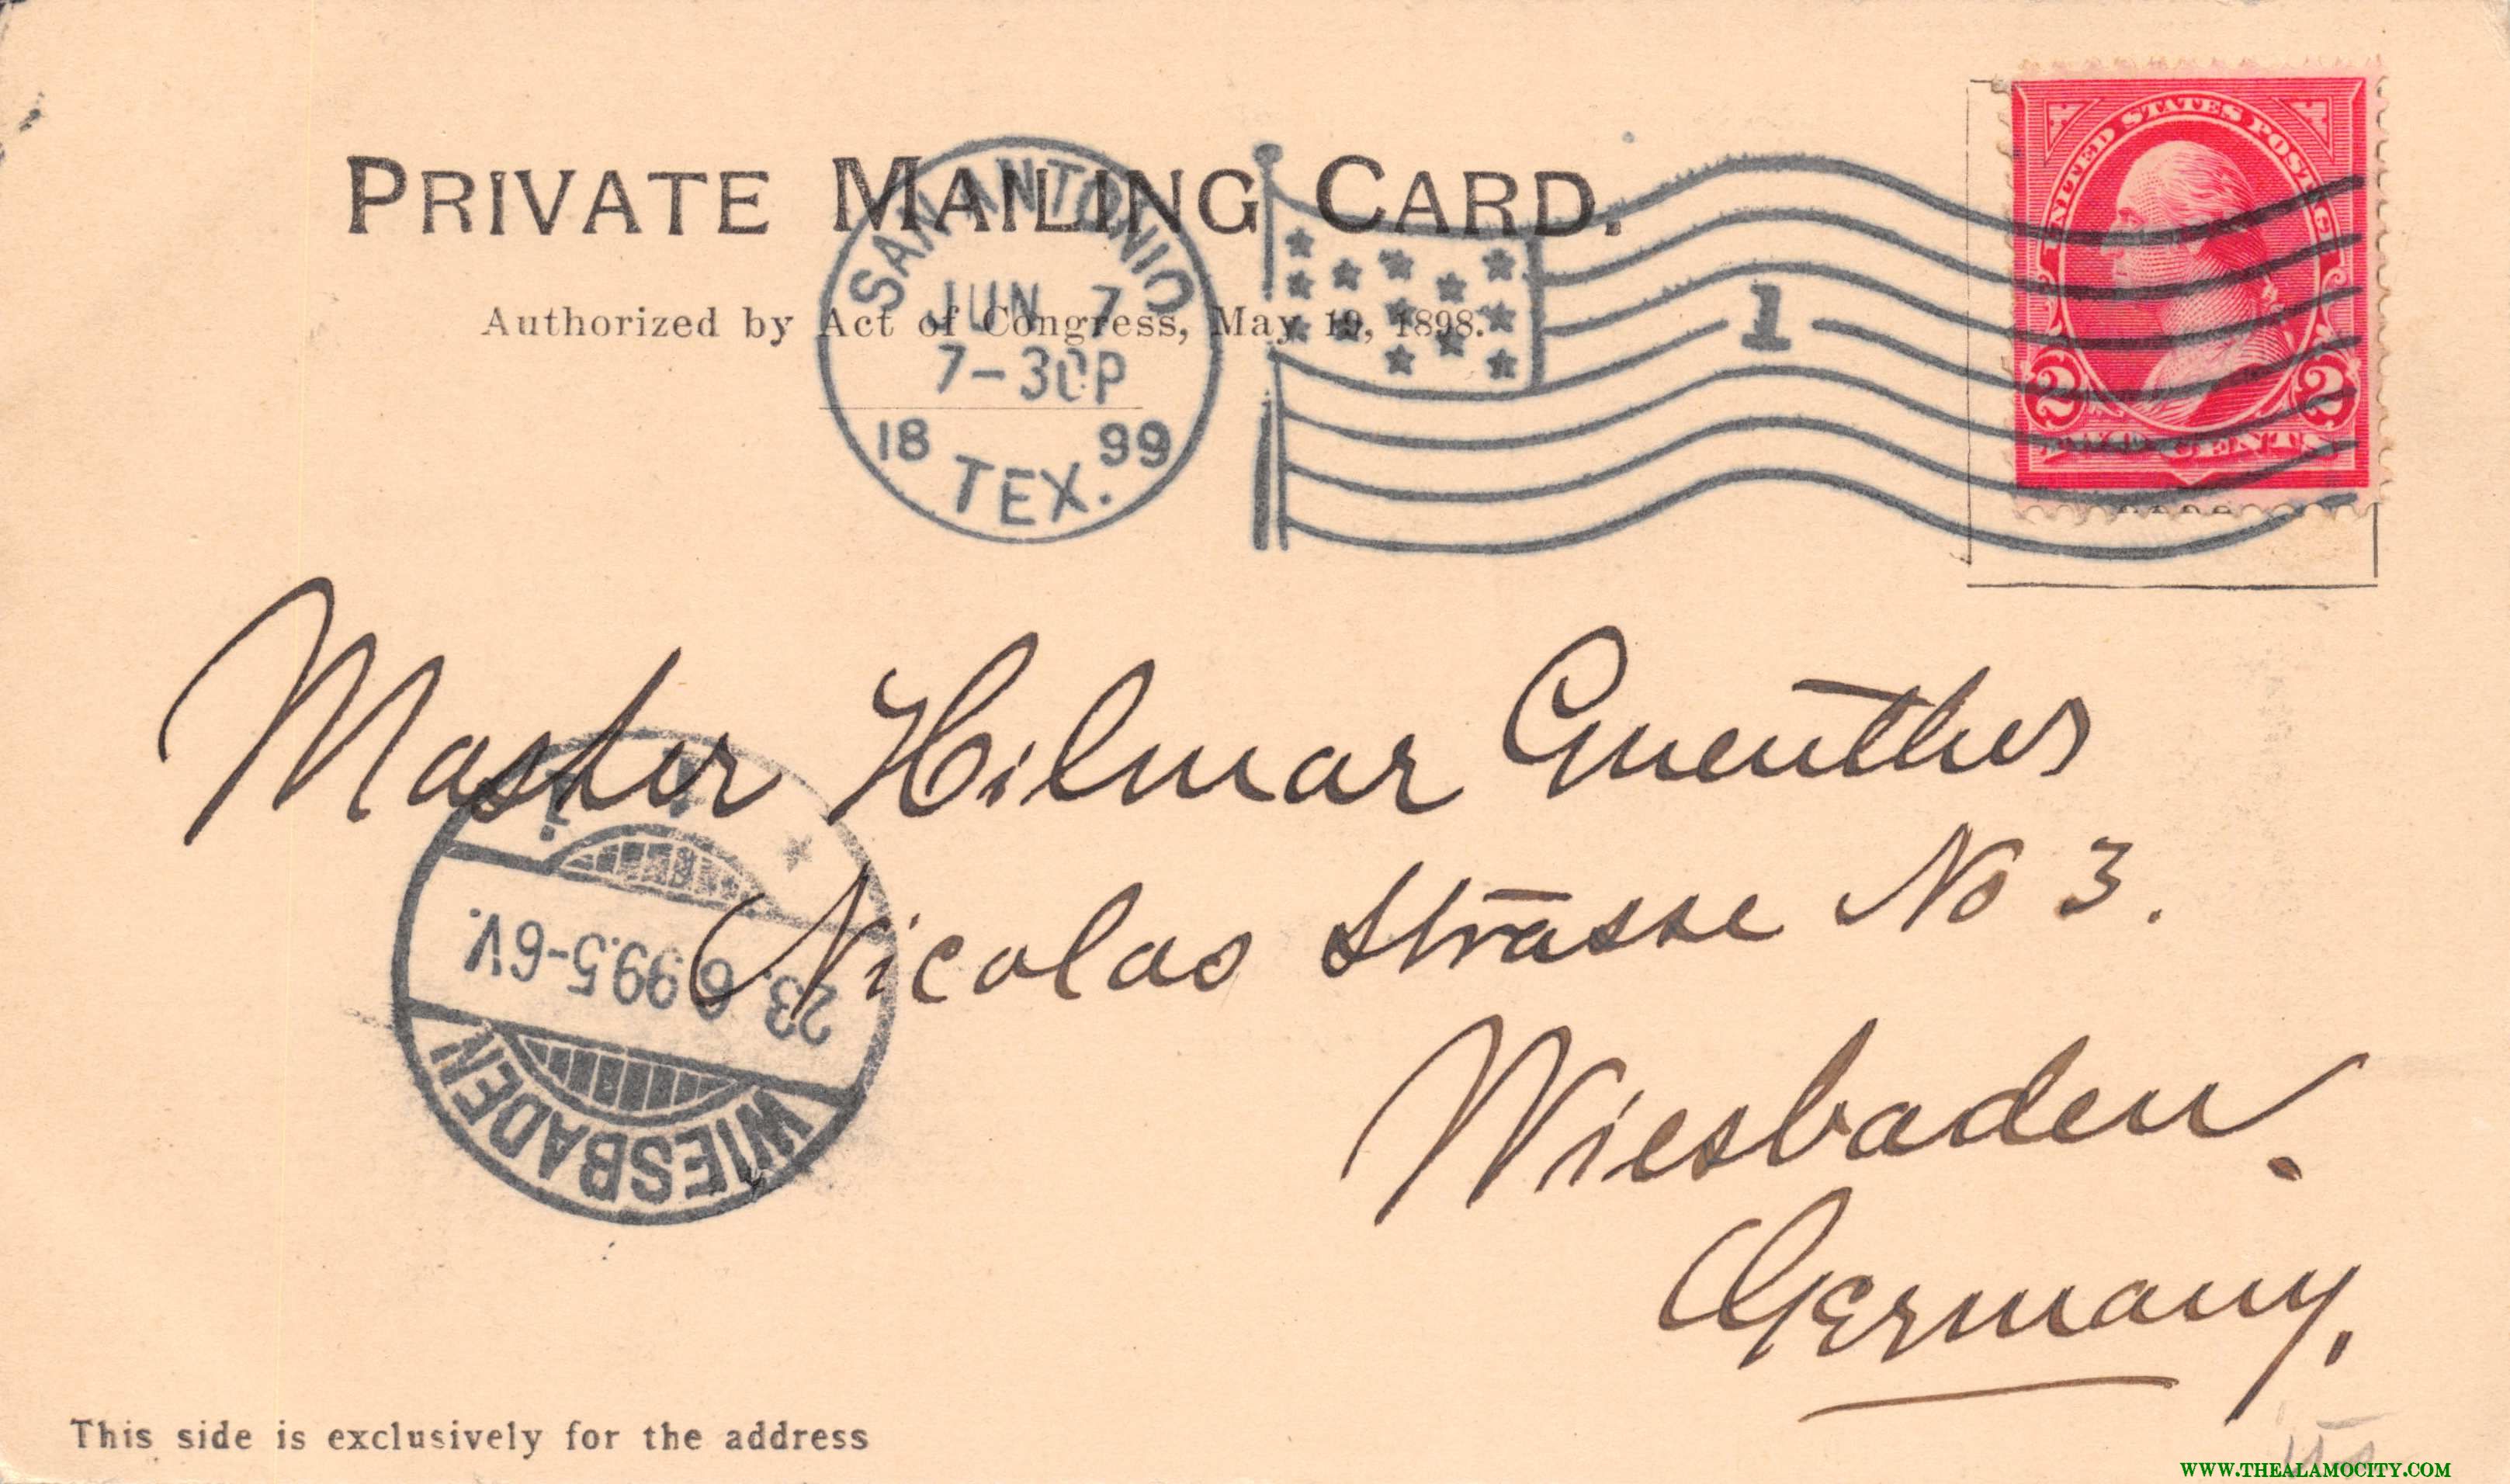 PRIVATE MAILING CARD.
Authorized by Act of Congress, May 19, 1898.
SAN ANTONIO
JUN 7
7-30P
18 99
TEX.
1
UNITED STATES POSTAGE
2 2
TWO CENTS
Master Hilmar Guenther
Nicolas Strasse No 3.
Wiesbaden.
Germany.
WIESBADEN
23. 6. 99. 5-6V.
This side is exclusively for the address
WWW.THEALAMOCITY.COM